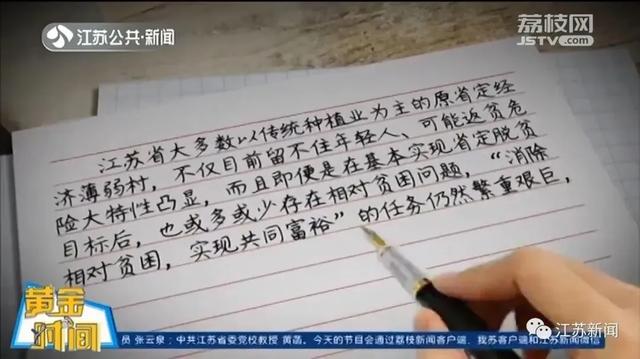 江苏公共·新闻
荔枝网
JSTV.com
江苏省大多数以传统种植业为主的原省定经
济薄弱村，不仅目前留不住年轻人、可能返贫危
险大特性凸显，而且即便是在基本实现省定脱贫
目标后，也或多或少存在相对贫困问题，“消除
相对贫困，实现共同富裕”的任务仍然繁重艰巨，
黄金
时间
员 张云泉；中共江苏省委党校教授 黄菡。今天的节目会通过荔枝新闻客户端、我苏客户端和江苏新闻微信
江苏新闻